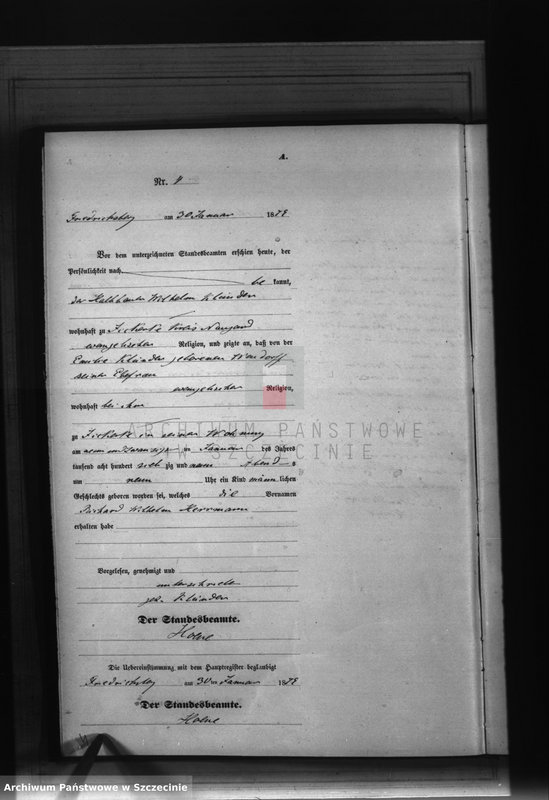 A.
Nr. 4
Friedrichsberg am 30 Januar 1879
Vor dem unterzeichneten Standesbeamten erschien heute, der
Persönlichkeit nach
be kannt,
der Halbbauer Wilhelm Klünder
wohnhaft zu Kreis Naugard
evangelischer Religion, und zeigte an, daß von der
Klünder geborenen
seiner Ehefrau
evangelischer Religion,
wohnhaft bei ihm
zu in seiner Wohnung
am neun und zwanzigsten Januar des Jahres
tausend acht hundert sieb zig und neun Abend s
um neun Uhr ein Kind männ lichen
Geschlechts geboren worden sei, welches die Vornamen
Richard Wilhelm Herrmann
erhalten habe
Vorgelesen, genehmigt und
unterschrieben
gez. Klünder
Der Standesbeamte.
Die Uebereinstimmung mit dem Hauptregister beglaubigt
Friedrichsberg am 30ten Januar 1879
Der Standesbeamte.
ARCHIWUM PAŃSTWOWE
W SZCZECINIE
Archiwum Państwowe w Szczecinie